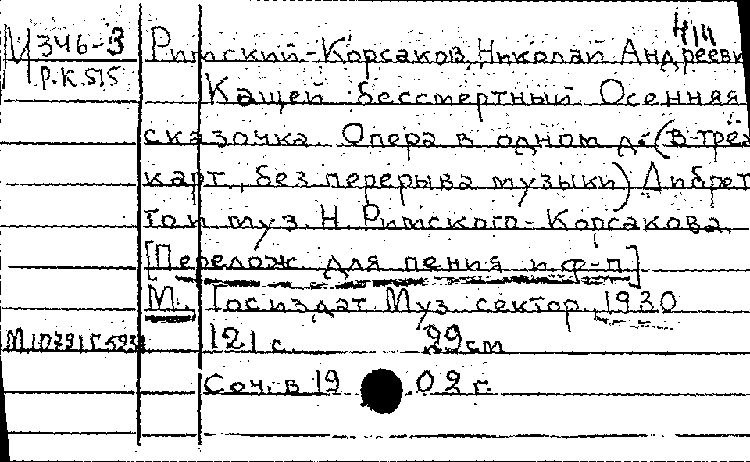 М 346-3
Р.К. 515
Римский-Корсаков, Николай Андрееви
Кащей бессмертный. Осенняя
сказочка. Опера в одном д. (в трёх
карт., без перерыва музыки) Либрет
то и муз. Н. Римского-Корсакова.
[Перелож для пения и ф-п]
М., Госиздат. Муз. сектор, 1930
121 с. 29 см
Соч. в 19 02 г.